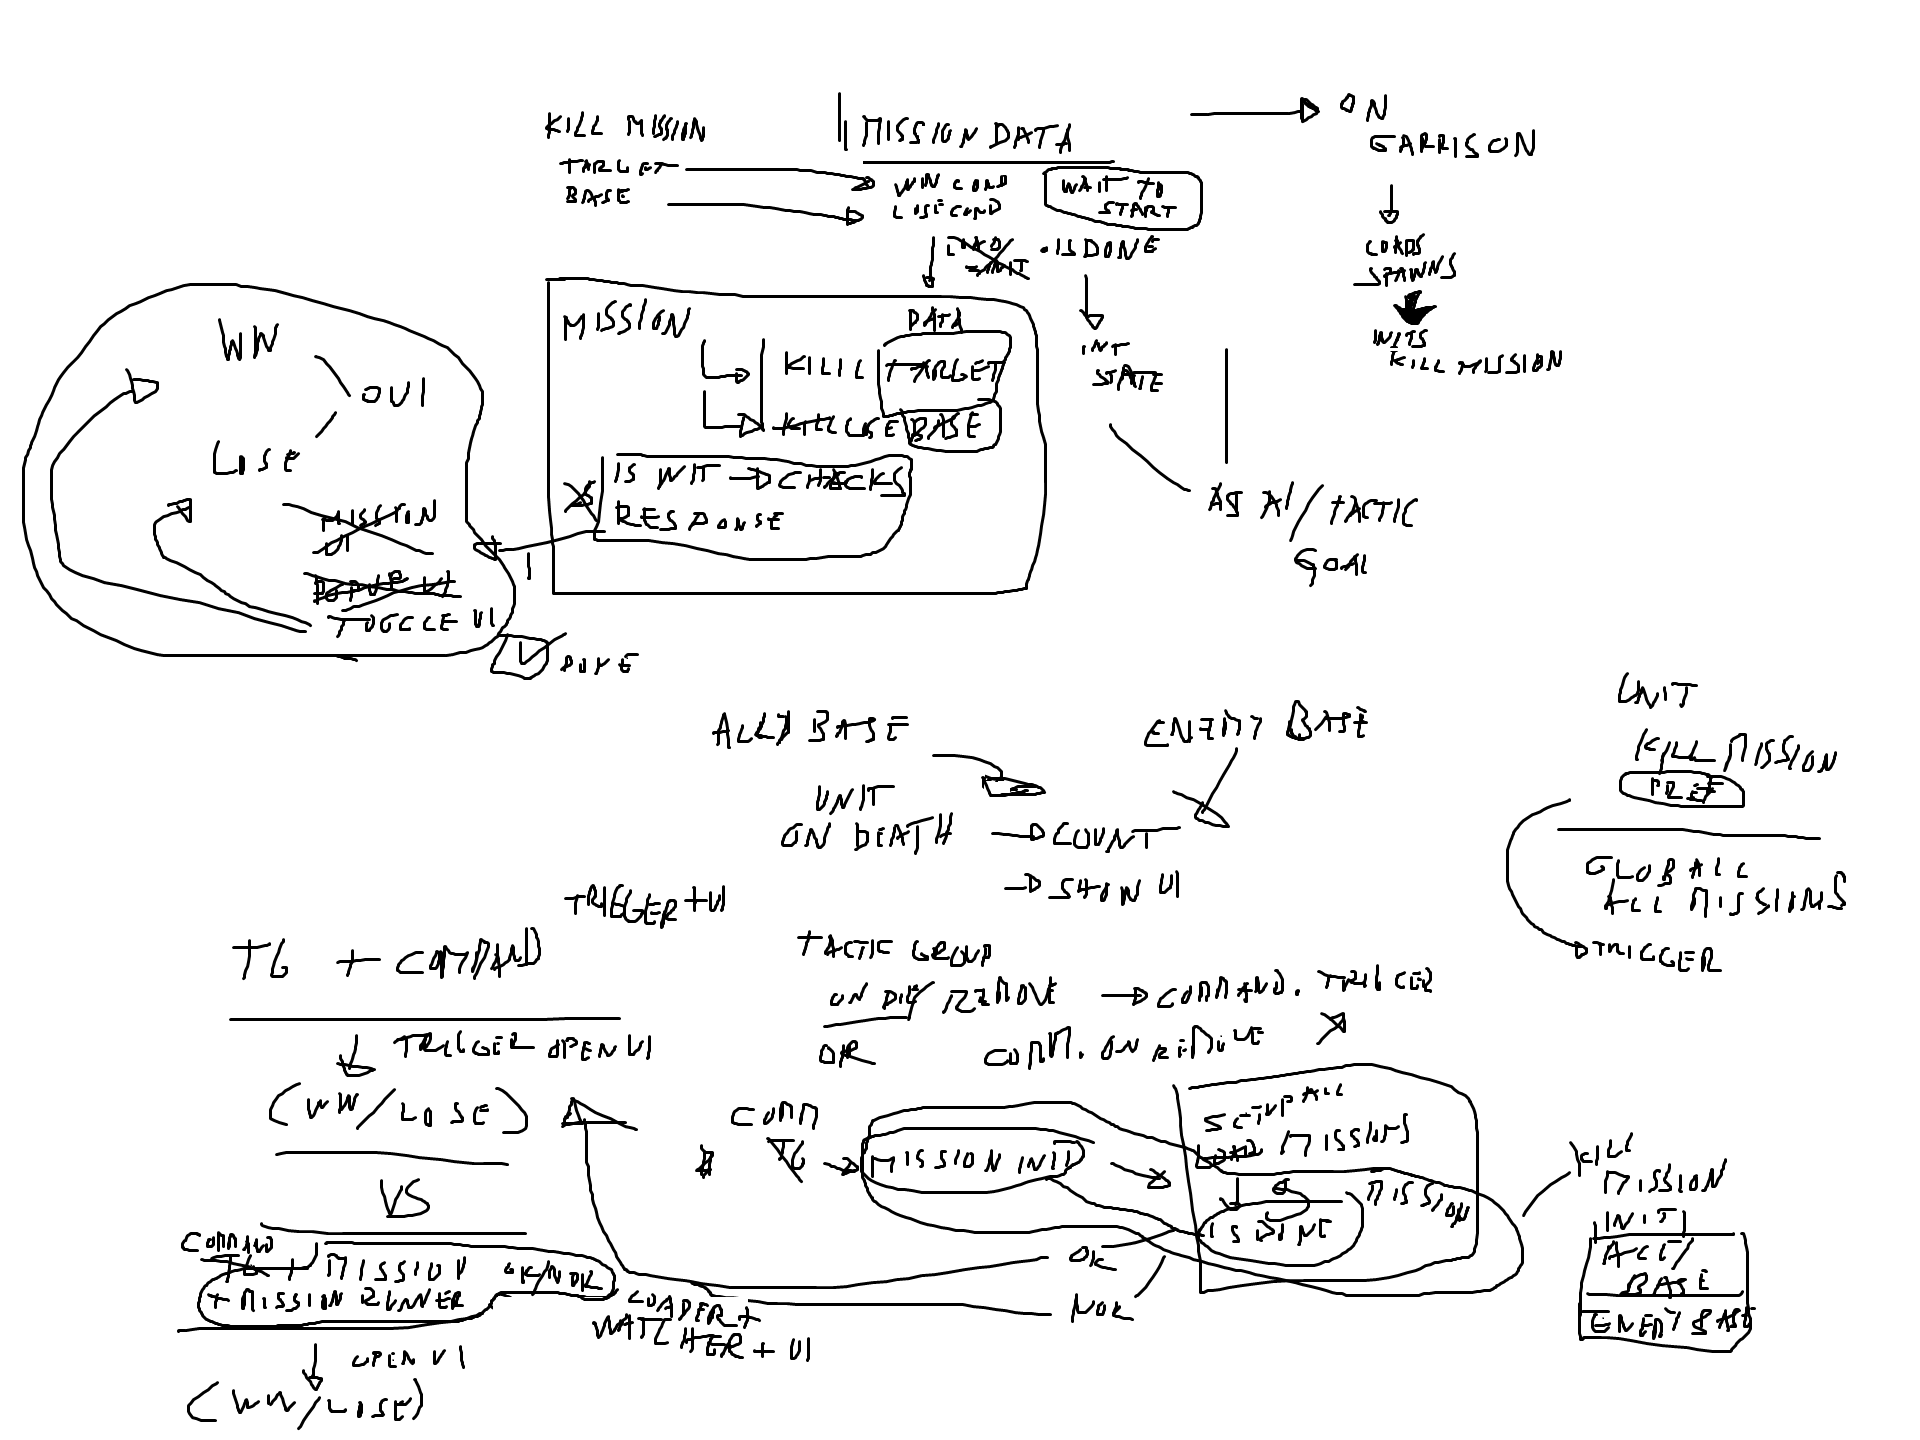 KILL MISSION
TARGET
BASE
MISSION DATA
WIN COND
LOSE COND
WAIT TO
START
LOAD
INIT
.IS DONE
ON
GARRISON
LOADS
SPAWNS
INITS
KILL MISSION
INT
STATE
AS AI/TACTIC
GOAL
MISSION
DATA
KILL TARGET
KILL LOSE BASE
IS INIT → CHACKS
RESPONSE
WIN
LOSE
OUI
MISSION
UI
POPUP UI
TOGGLE UI
DONE
ALLY BASE
ENEMY BASE
UNIT
ON DEATH → COUNT
→ SHOW UI
UNIT
KILL MISSION
PREF
GLOBALL
ALL MISSIONS
TRIGGER
TRIGGER + UI
TG + COMMAND
TRIGGER OPEN UI
(WIN/LOSE)
VS
COMMAND
TG + MISSION OK/NOK
+ MISSION RUNNER
OPEN UI
(WIN/LOSE)
LOADER +
WATCHER + UI
TACTIC GROUP
ON DIE/REMOVE → COMMAND. TRIGGER
OR
COMM. ON REMOVE
COMM
TG → MISSION INIT
SETUP ALL
LOAD MISSIONS
MISSION
IS DONE
OK
NOK
KILL
MISSION
INIT
ALLY
BASE
ENEMY BASE